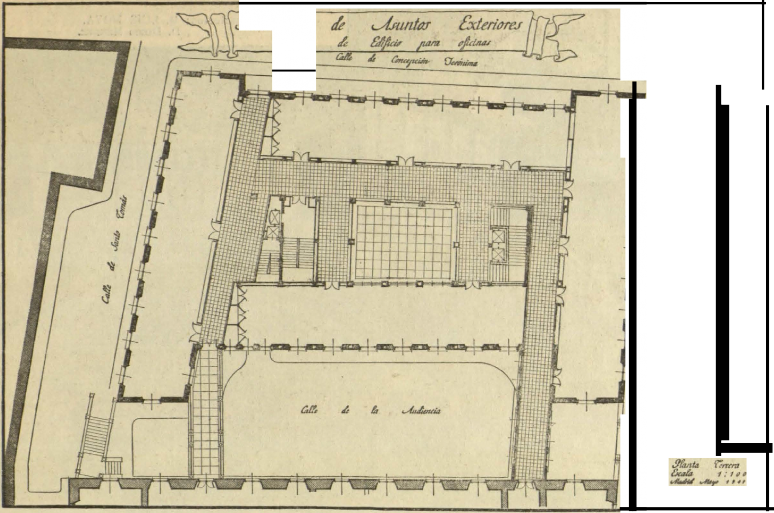 de Asuntos Exteriores
de Edificio para oficinas
Calle de Concepción Jerónima
Calle de Santo Tomás
Calle de la Audiencia
Planta Tercera
Escala 1:100
Madrid Mayo